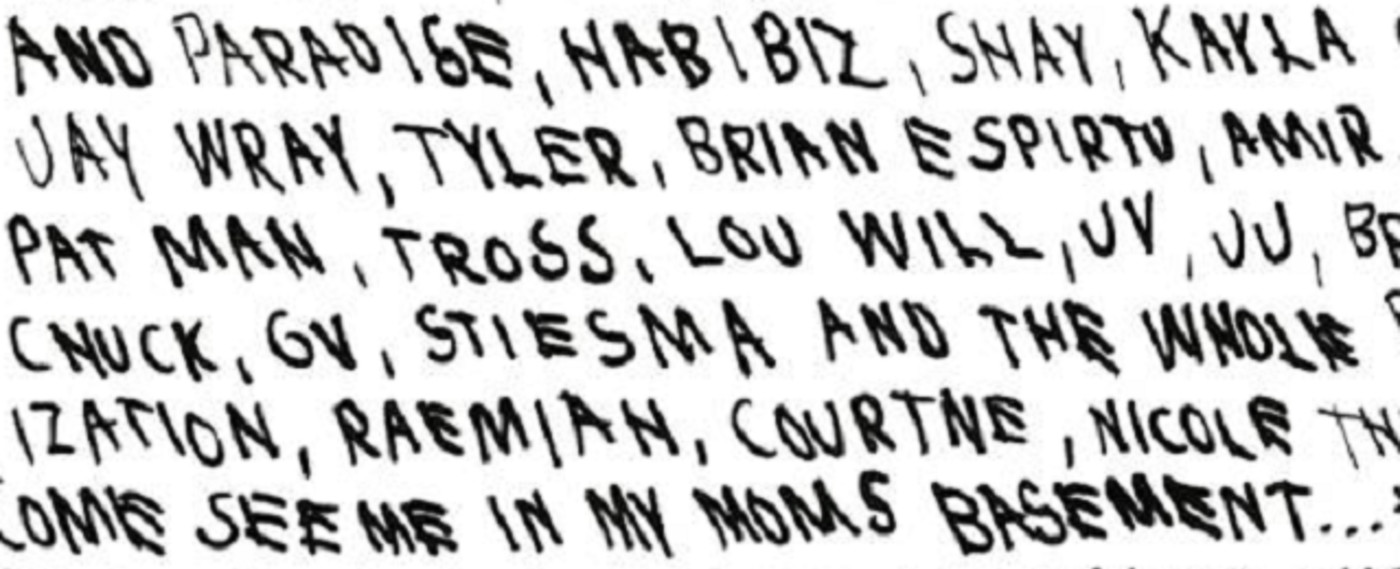 AND PARADISE, HABIBIZ, SHAY, KAYLA
JAY WRAY, TYLER, BRIAN ESPIRTU, AMIR
PAT MAN, TROSS, LOU WILL, JV, JU,
CHUCK, GV, STIESMA AND THE WHOLE
IZATION, RAEMIAH, COURTNE, NICOLE
COME SEE ME IN MY MOMS BASEMENT...